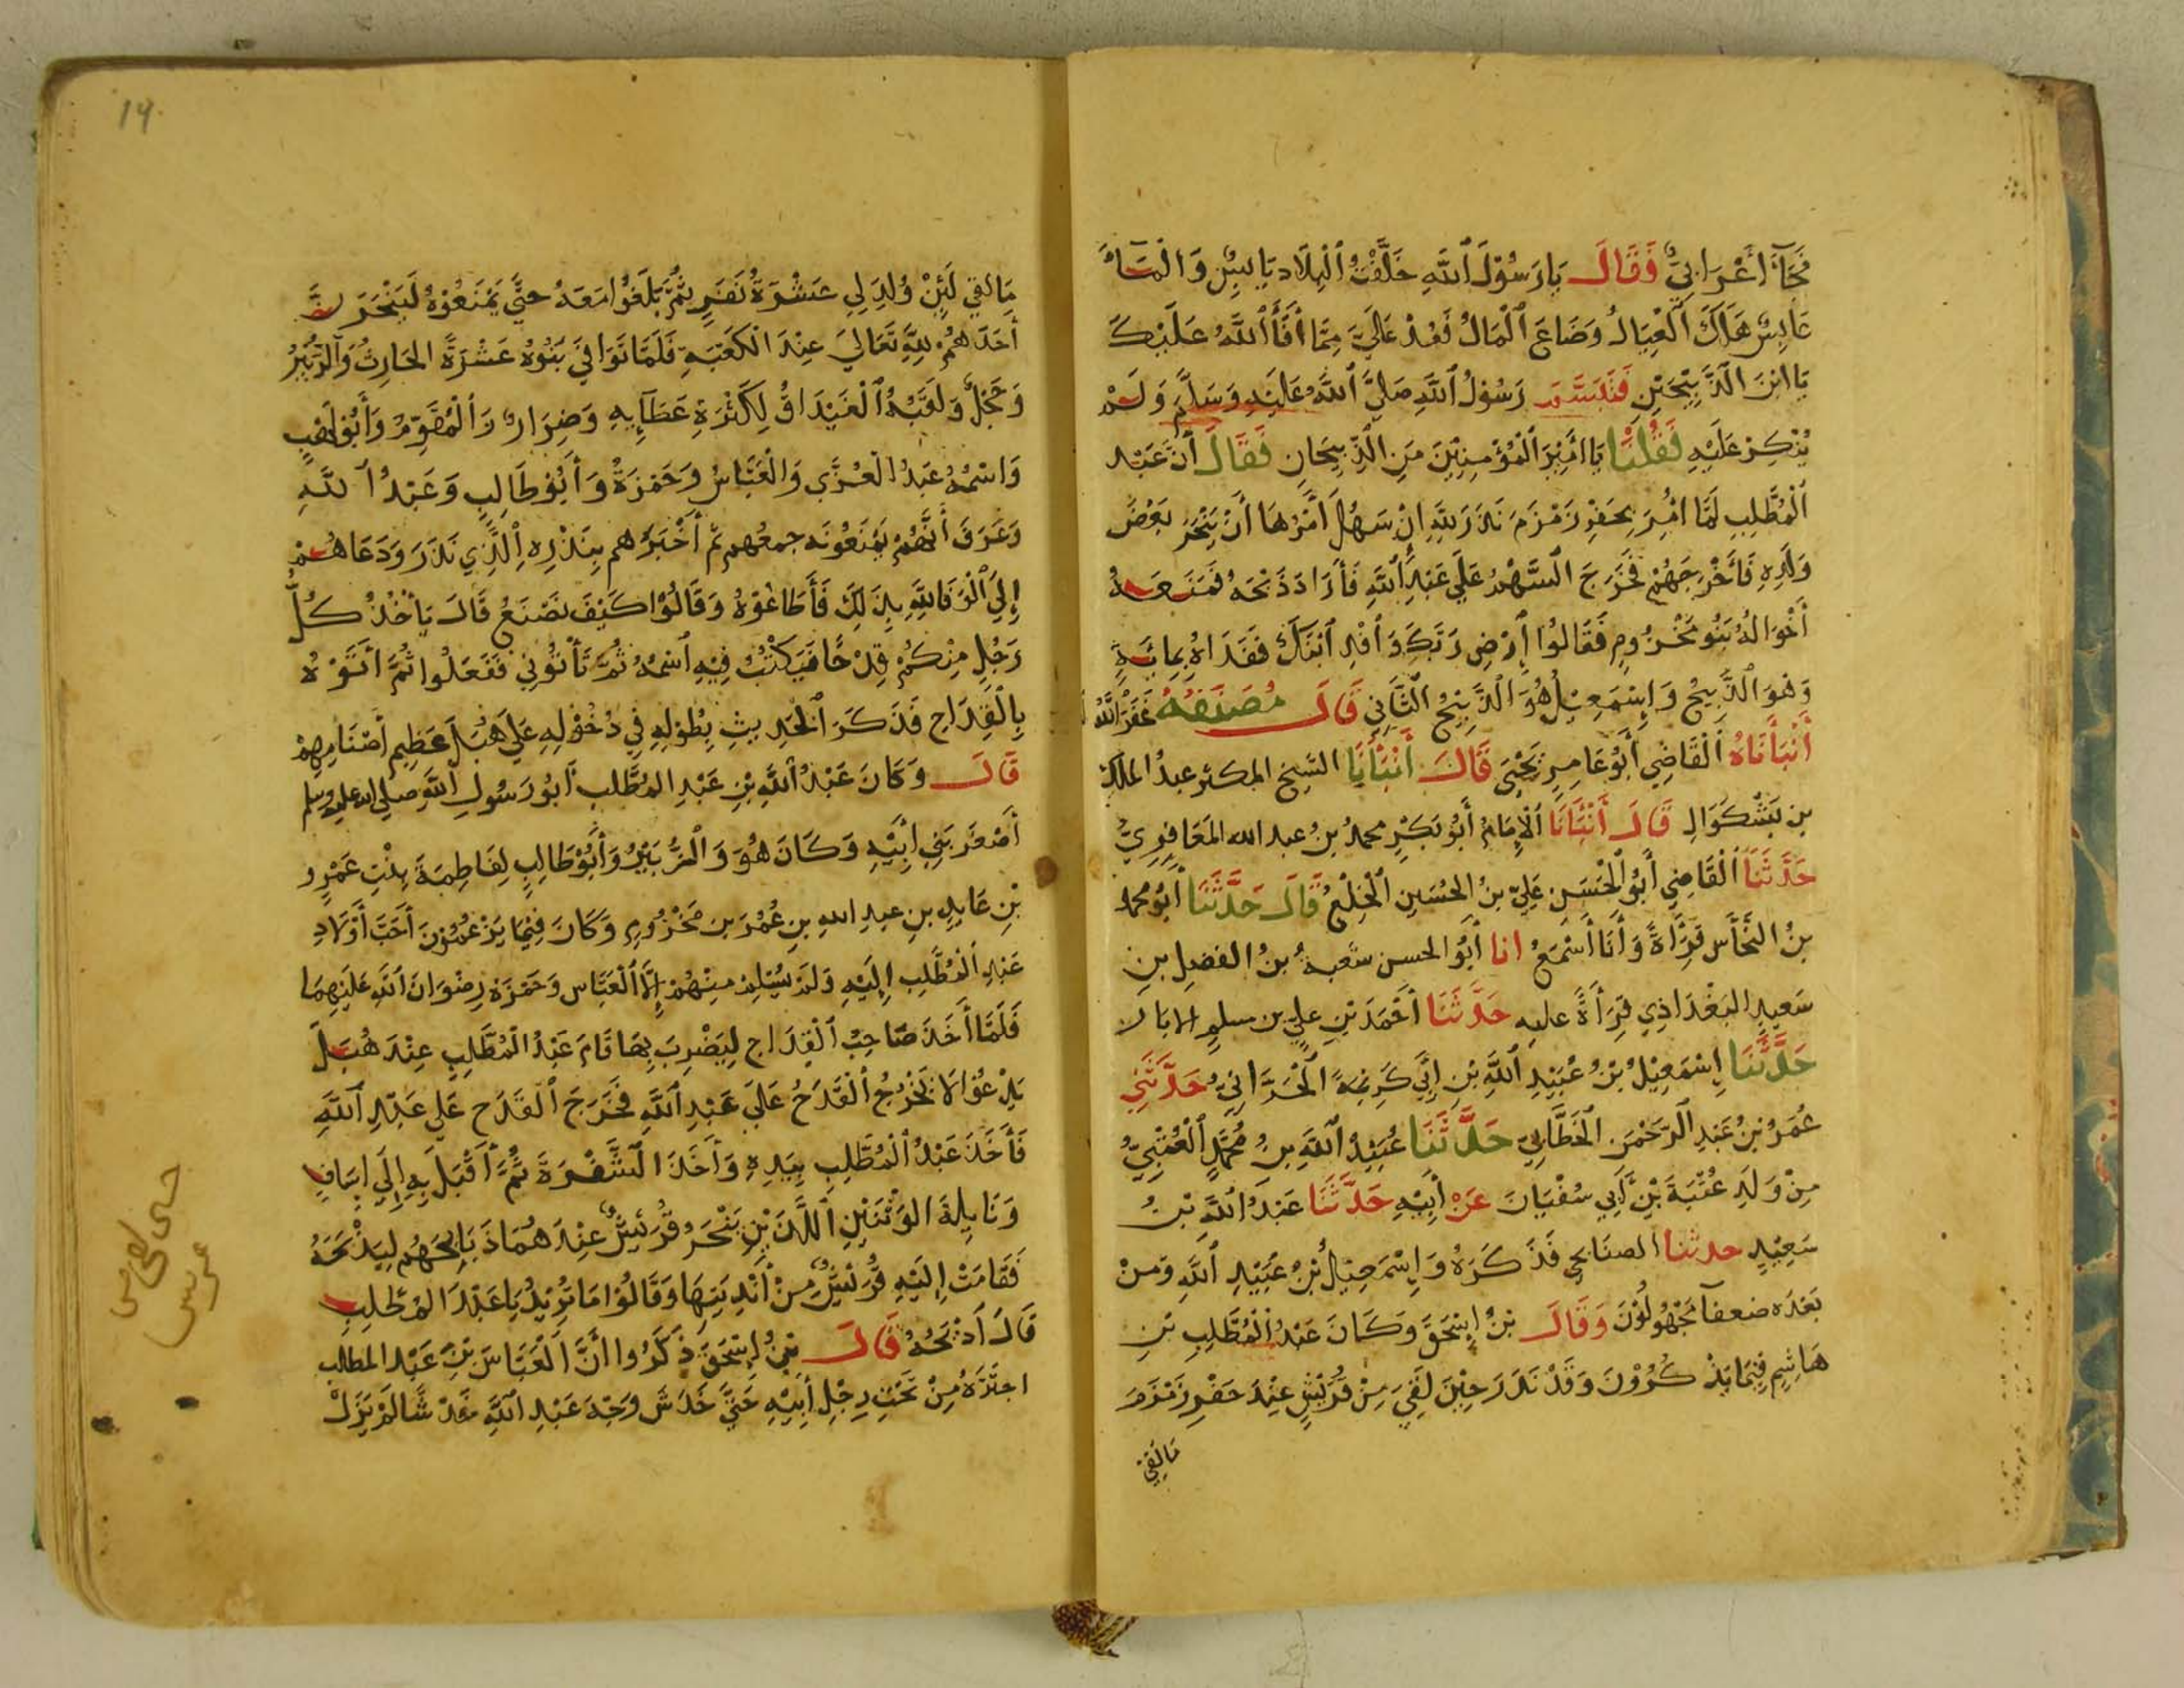 فَجَآءَ أَعْرَابِيٌّ فَقَالَ يَا رَسُوْلَ ٱللَّهِ خَلَّفْتُ ٱلْبِلَادَ يَابِسٌ وَالْمَآءُ
عَابِسٌ هَلَكَ ٱلْعِيَالُ وَضَاعَ ٱلْمَالُ فَعُدْ عَلَيَّ مِمَّا أَفَآءَ ٱللَّهُ عَلَيْكَ
يَا ابْنَ الَذَّبِيْحَيْنِ فَتَبَسَّمَ رَسُوْلُ ٱللَّهِ صَلَّيَ ٱللَّهُ عَلَيْهِ وَسَلَّمَ وَلَمْ
يُنْكِرْ عَلَيْهِ فَقُلْنَا يَا امَيْرَ ٱلْمُؤْمِنِيْنَ مَنِ الَذَّبِيْحَانِ فَقَالَ أَنَّ عَبْدَ
ٱلْمُطَّلِبِ لَمَّا امُرَ بِحَفْرِ زَمْزَمَ نَذَرَ لِلَّهِ إِنْ سَهُلَ أَمْرُهَا أَنْ يَنْحَرَ بَعْضَ
وَلَدِهِ فَأَخْرَجَهُمْ فَخَرَجَ السَّهْمُ عَلَي عَبْدِ ٱللَّهِ فَأَرَادَ ذَبْحَهُ فَمَنَعَهُ
أَخْوَالُهُ بَنُو مَخْزُومٍ فَقَالُوا إِرْضِ رَبَّكَ وَافْدِ ٱبْنَكَ فَفَدَاهُ بِمِائَةٍ
وَهُوَ الَذَّبِيْحُ وَإِسْمَعِيْلُ هُوَ الَذَّبِيْحُ الثَّانِي قَالَ مُصَنِّفُهُ غَفَرَ اللَّهُ
أَنْبَأَنَاهُ ٱلْقَاضِي أَبُو عَامِرٍ يَحْيَيَ قَالَ أَنْبَأَنَا الشيخ المكثر عبدُ الملك
بن بَشْكُوَالِ قَالَ أَنْبَأَنَا ٱلْإِمَامُ أَبُو بَكْرٍ محمدُ بنُ عبد الله المَعَافِرِيُّ
حَدَّثَنَا ٱلْقَاضِي أَبُو ٱلْحَسَنِ عَلِيّ بنُ الحُسَيْنِ ٱلْخِلْعِيُّ قَالَ حَدَّثَنَا أَبُو محمد
بنُ النَحَّأسِ قِرَأَةً وَأَنَا أَسْمَعُ انا أَبُو الحسن شعبةُ بنُ الفضلِ بنِ
سَعيدٍ البَغْدَاذِي قِرَأَةً عليه حَدَّثَنَا أَحْمَدَ بْنِ عليّ بن سلمٍ الابار
حَدَّثَنَا إِسْمَعِيْلُ بْنُ عُبَيْدِ ٱللَّهِ بْنِ أَبِي كَرِيْمَةَ ٱلْحَرَّانِيُّ حَدَّثَنِي
عُمَرُ بْنُ عَبْدِ ٱلرَّحْمَنِ ٱلْخَطَّابِيّ حَدَّثَنَا عُبَيْدُ ٱللَّهِ بنُ مُحَمَّدٍ ٱلْعُتْبِيُّ
مِنْ وَلَدِ عُتْبَةَ بْنِ أَبِي سُفْيَانَ عَنْ أَبِيْهِ حَدَّثَنَا عَبْدُ ٱللَّهِ بْنُ
سَعِيْدٍ حدثنا الصنَابحي فَذَكَرَهُ وَإِسْمَعِيْلُ بْنُ عُبَيْدِ ٱللَّهِ وَمنْ
بَعْدَه ضعفآ مَجْهُولُوْنَ وَقَالَ بْنُ إِسْحَقَ وَكَانَ عَبْدُ ٱلْمُطَّلِبِ بْنِ
هَاشِمٍ فِيْمَا يَذْكُرُوْنَ وَقَدْ نَذَرَ حِيْنَ لَقِيَ مِنْ قُرَيْشٍ عِنْدَ حَفْرِ زَمْزَمَ
مَا لَقِيَ
14
مَا لَقِي لَئِنْ وُلِدَ لِي عَشْرَةُ نَفَرٍ ثُمَّ بَلَغُوْا مَعَهُ حَتَّي يَمْنَعُوْهُ لَيَنْحَرَنَّ
أَحَدَهُمْ لِلَّهِ تَعَالَي عِنْدَ الْكَعْبَةِ فَلَمَّا تَوَافَيَ بَنُوْهُ عَشْرَةً الحَارِثُ وَٱلزُّبَيْرُ
وَحَجْلٌ وَلَقَبُهُ ٱلْغَيْدَاقُ لِكَثْرَةِ عَطَآئِهِ وَضِرَارٌ وَٱلْمُقَوِّمُ وَأَبُوْ لَهَبٍ
وَاسْمُهُ عَبْدُ الْعُزَّي وَالْعَبَّاسُ وَحَمْزَةُ وَأَبُوْ طَالِبٍ وَعَبْدُ ٱللَّهِ
وَعَرَفَ أَنَّهُمْ يَمْنَعُوْنَه جمعُهم ثم أَخْبَرَهُم بِنَذْرِه ٱلَّذِي نَذَرَ وَدَعَاهُمْ
إِلِيَ ٱلْوَفَا لِلَّهِ بِذَلِكَ فَأَطَاعُوْهُ وَقَالُوْا كَيْفَ نَصْنَعُ قَالَ يَأْخُذُ كُلُّ
رَجُلٍ مِنْكُمْ قِدْحًا فَيَكْتُبُ فِيْهِ ٱسْمَهُ ثُمَّ تَأْتُوْنِي فَفَعَلُوا ثُمَّ أَتَوْهُ
بِالْقِدَاحِ فَذَكَرَ ٱلْحَدِيثِ بِطُوْلِهِ فِي دُخُوْلِهِ عَلَي هُبَلَ عَظِيمِ أَصْنَامِهِمْ
قَالَ وَكَانَ عَبْدُ ٱللَّهِ بْنِ عَبْدِ المُطَّلِبِ أَبُو رَسُولِ ٱللَّهِ صلي الله عليه وسلم
أَصْغَرَ بَنِي أَبِيْهِ وَكَانَ هُوَ وَٱلزُّبَيْرُ وَأَبُوْ طَالِبٍ لِفَاطِمَةَ بِنْتِ عَمْرِو
بْنِ عَايِدِ بنِ عبدِ اللهِ بنِ عُمْرَ بن مَخْزُومٍ وَكَانَ فِيْمَا يَزْعُمُوْنَ أَحَبَّ أَوْلَادِ
عَبْدِ ٱلْمُطَّلِبِ إِلَيْهِ وَلَمْ يُسْلِمْ مِنْهُمْ إِلَّا ٱلْعَبَّاسِ وَحَمْزَةِ رِضْوَانَ ٱللَّهِ عَلَيْهِمَا
فَلَمَّا أَخَذَ صَاحِبُ ٱلْقِدَاحِ لِيَضْرِبَ بِهَا قَامَ عَبْدُ الْمُطَّلِبِ عِنْدَ هُبَلَ
يَدْعُوْا لَا يَخْرُجُ ٱلْقَدَحُ عَلَي عَبْدِ ٱللَّهِ فَخَرَجَ ٱلْقَدَح عَلَي عَبْدِ ٱللَّهِ
فَأَخَذَ عَبْدُ ٱلْمُطَّلِبِ بِيَدِهِ وَأَخَذَ الشَّفْرَةَ ثُمَّ أَقْبَلَ بِهِ إِلَي إِسَافٍ
وَنَايِلَةَ الوَثْنَيْنِ ٱللَّذَيْنِ يَنْحَرُ قُرَيْشٌ عِنْدَهُمَا ذَبَائِحَهُم لِيَذْبَحَهُ
فَقَامَتْ إِلَيْهِ قُرَيْشٌ مِنْ أَنْدِيَتِهَا وَقَالُوْا مَا تُرِيْدُ يَا عَبْدَ المُطَلِبِ
قَالَ أَذْبَحُهُ قَالَ بْنُ إِسْحَقَ ذَكَرُوا أَنَّ ٱلْعَبَّاسَ بْنَ عَبْدِ المطالب
اجتَرَّهُ مِنْ تَحْتِ رِجْلِ أَبِيْهِ حَتَّي خَدَشَ وَجْهَ عَبْدِ ٱللَّهِ خَدْشًا لَمْ يَزَلْ